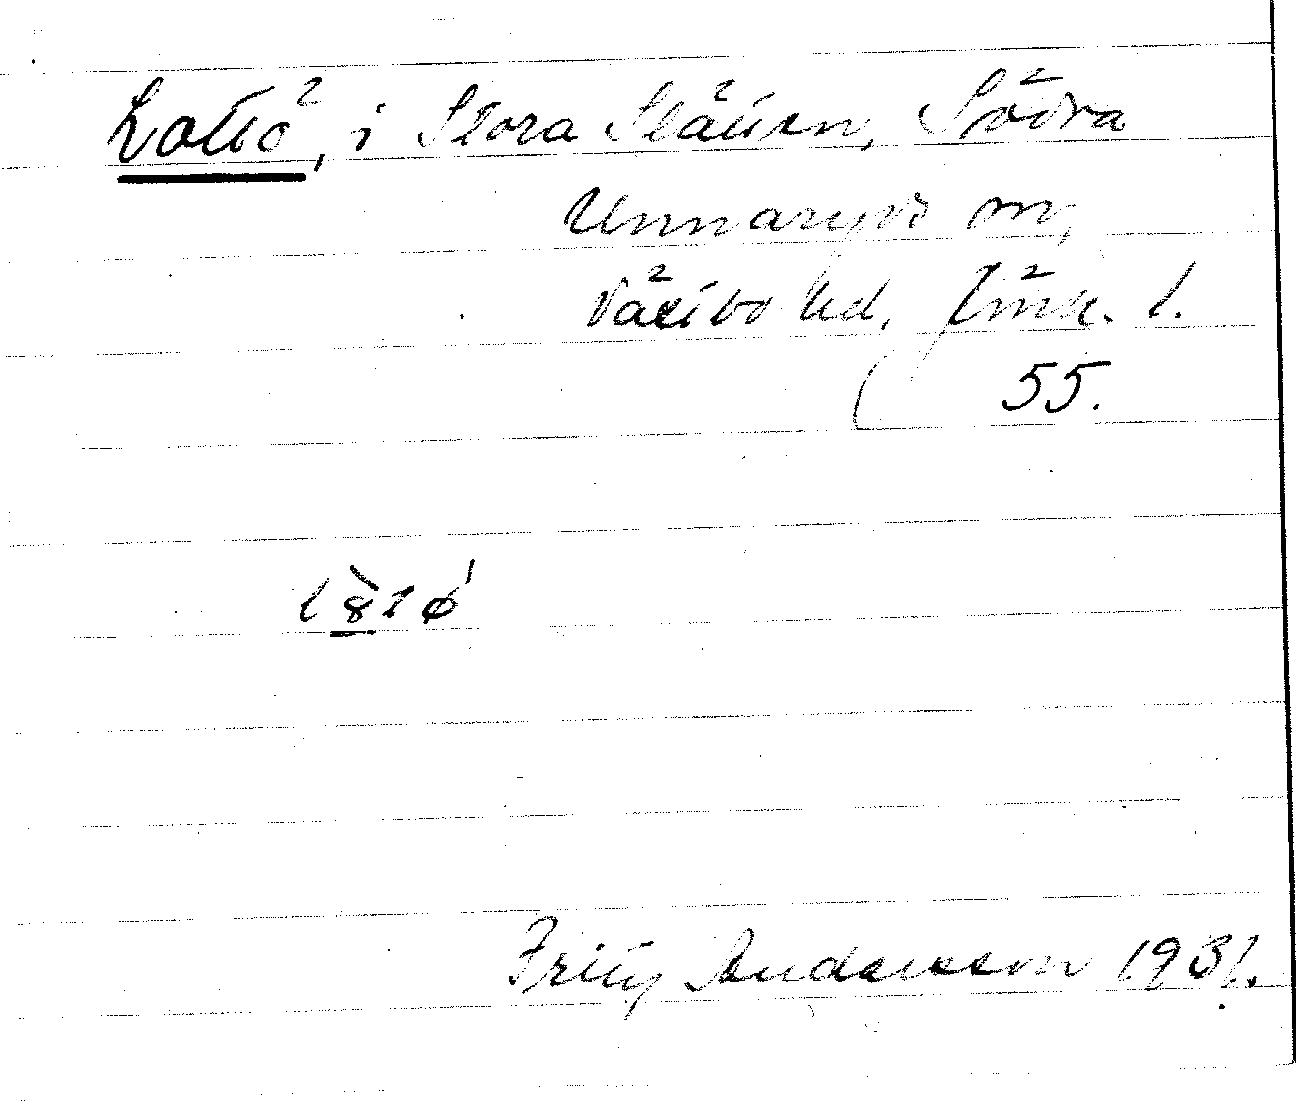 Lattö, i Stora Slätten, Södra
Unnaryds sn,
Västbo hd, Jönk. l.
55.
Fritz Andersson 1931.